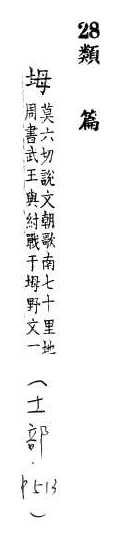 28類篇
坶莫六切說文朝歌南七十里地
周書武王與紂戰于坶野文一
(土部·P513)